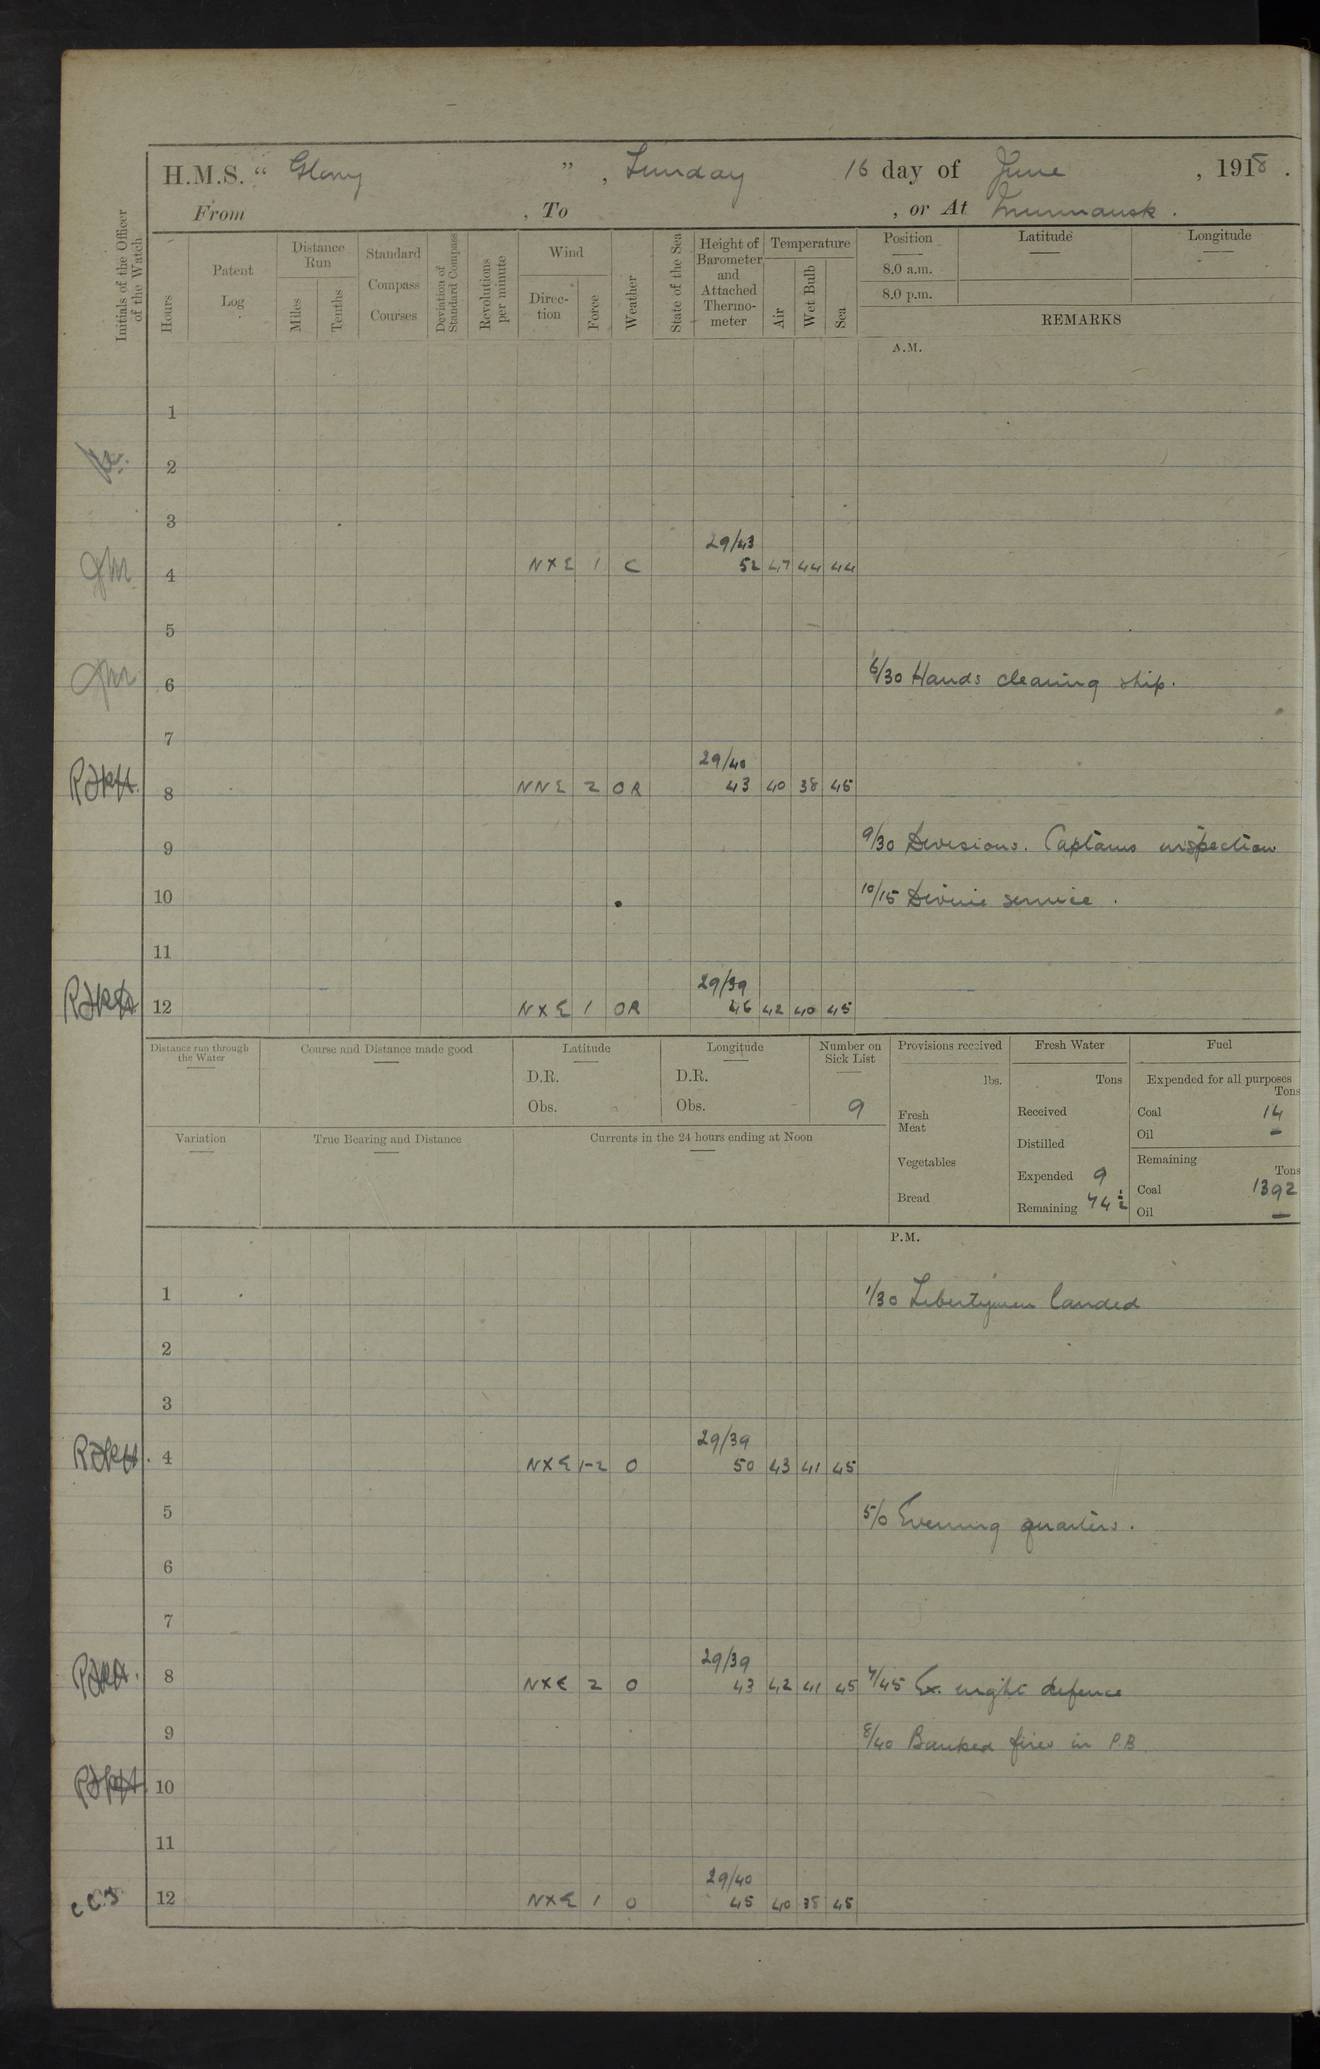 H.M.S. "Glory", Sunday 16 day of June, 1918.
From , To , or At Murmansk.
Initials of the Officer of the Watch
Hours
Patent Log
Distance Run
Miles
Tenths
Standard Compass Courses
Deviation of Standard Compass
Revolutions per minute
Wind
Direc-tion
Force
Weather
State of the Sea
Height of Barometer and Attached Thermo-meter
Temperature
Air
Wet Bulb
Sea
Position
8.0 a.m.
8.0 p.m.
Latitude
Longitude
REMARKS
A.M.
1
2
3
29/43
4 N X E 1 C 52 47 44 44
5
6 6/30 Hands cleaning ship.
7
29/40
8 NNE 2 OR 43 40 38 45
9 9/30 Divisions. Captains inspection
10 10/15 Divine service.
11
29/39
12 N X E 1 OR 46 42 40 45
Distance run through the Water
Course and Distance made good
Latitude
D.R.
Obs.
Longitude
D.R.
Obs.
Number on Sick List
9
Provisions received
lbs.
Fresh Meat
Vegetables
Bread
Fresh Water
Tons
Received
Distilled
Expended 9
Remaining 74 1/2
Fuel
Expended for all purposes
Tons
Coal 14
Oil –
Remaining
Tons
Coal 1392
Oil –
Variation
True Bearing and Distance
Currents in the 24 hours ending at Noon
P.M.
1 1/30 Libertymen landed
2
3
29/39
4 N X E 1-2 O 50 43 41 45
5 5/0 Evening quarters.
6
7
29/39
8 N X E 2 O 43 42 41 45 7/45 Ex. night defence
9 8/40 Banked fires in P.B
10
11
29/40
12 N X E 1 O 45 40 38 45